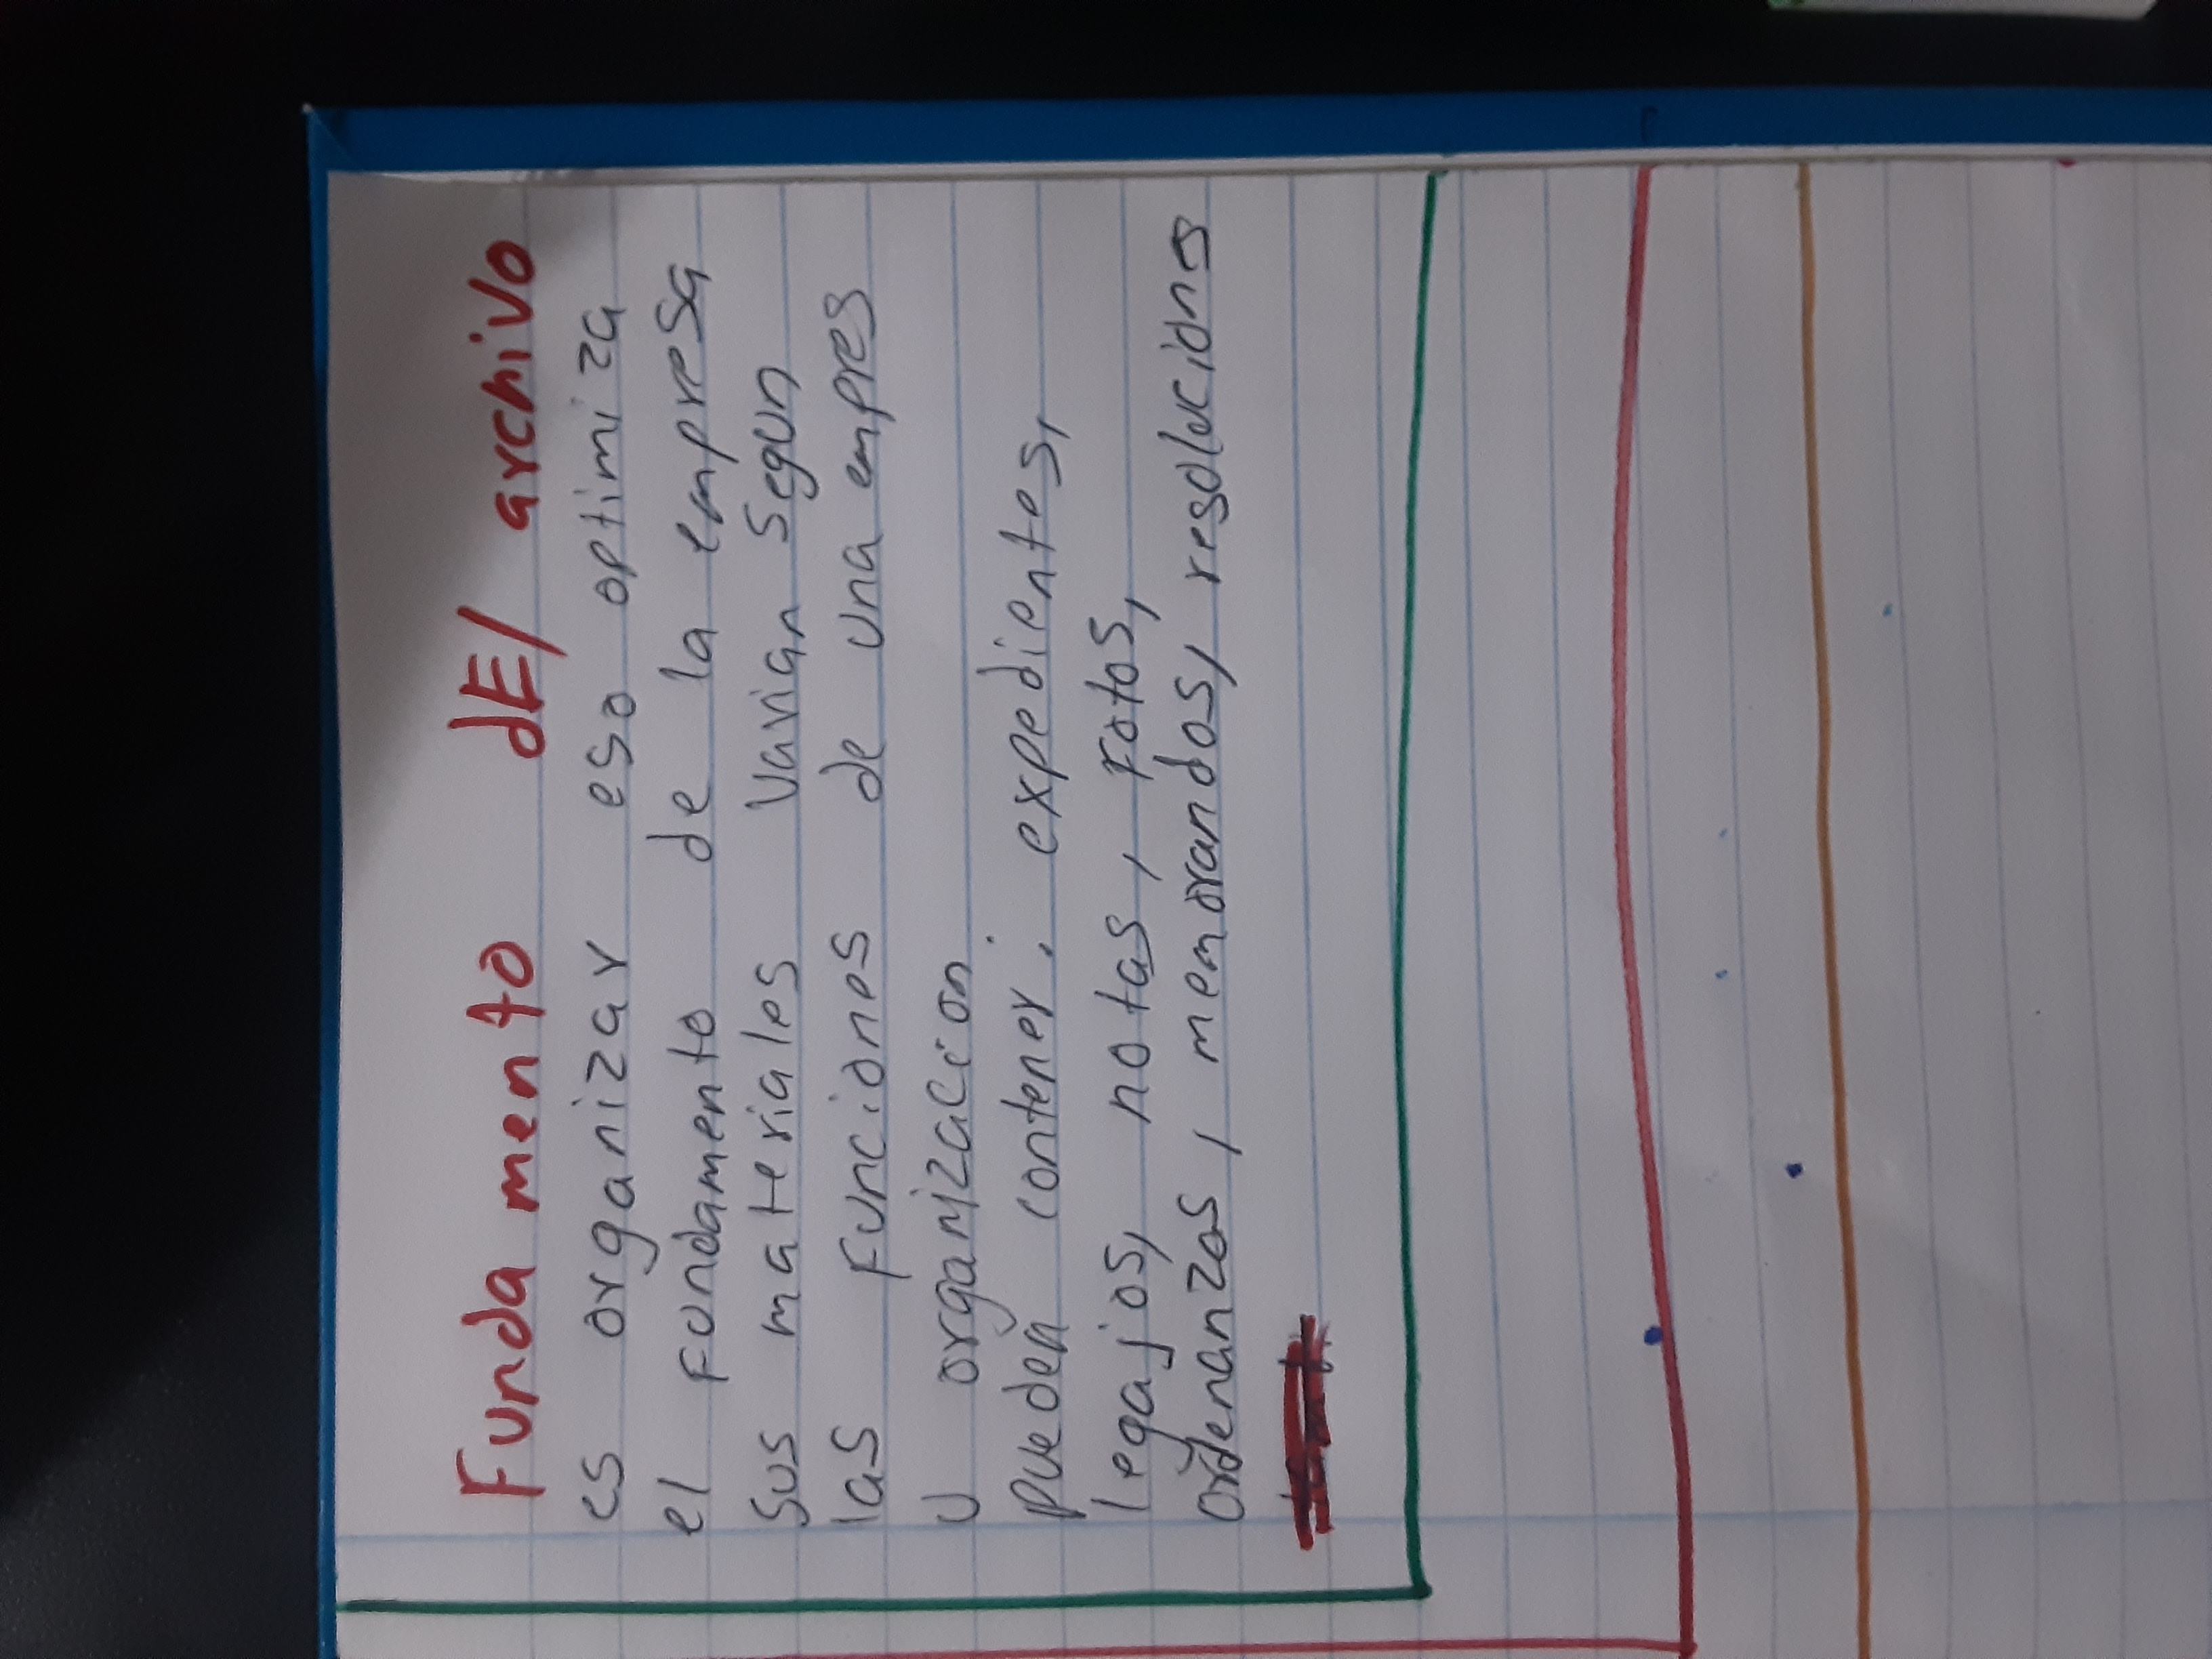 Fundamento dEl archivo
es organizar eso optimiza
el Fundamento de la empresa
sus materiales varian segun
las Funciones de una empres
u organización
pueden contener: expedientes,
legajos, notas, Fotos,
ordenanzas, memorandos, resolucions